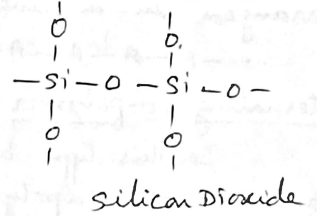 O O
-Si-O-Si-O-
O O
Silicon Dioxide